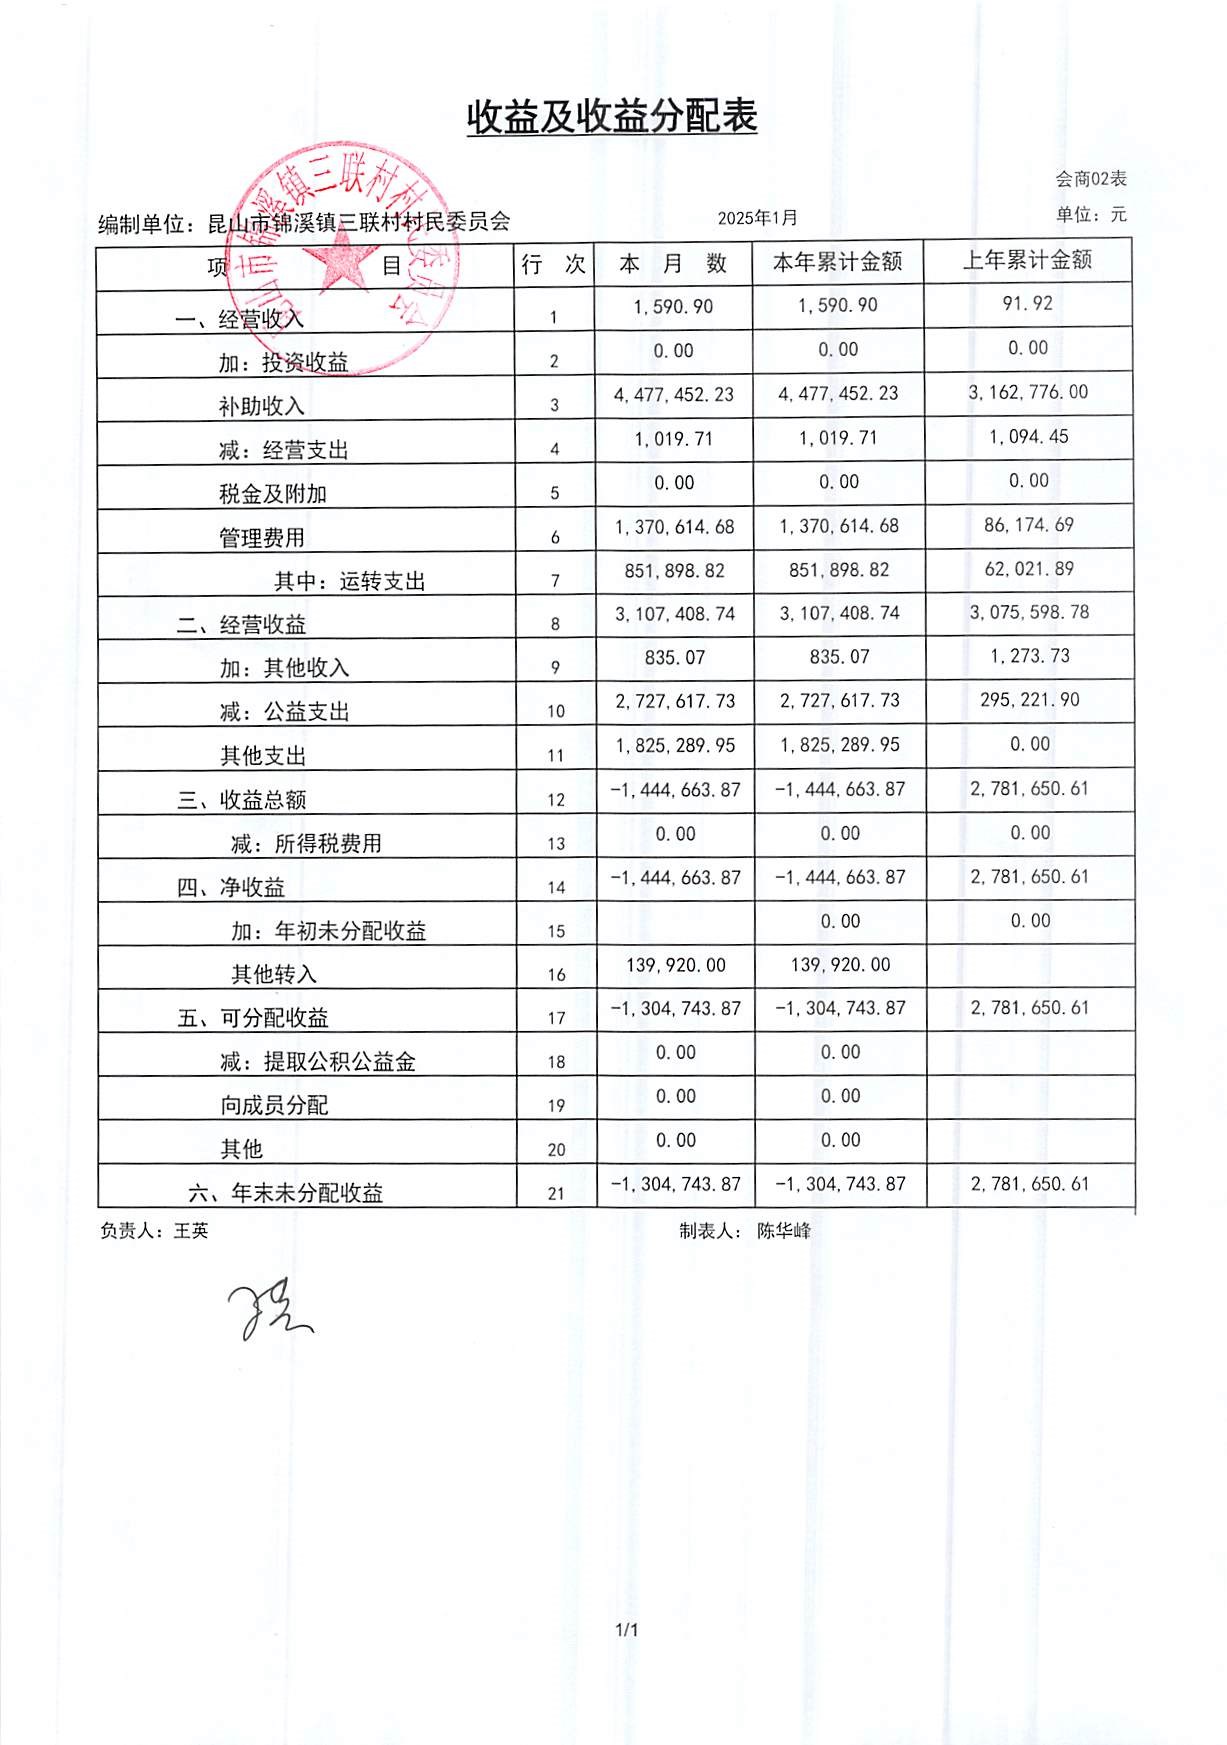 收益及收益分配表
会商02表
编制单位：昆山市锦溪镇三联村村民委员会 2025年1月 单位：元
昆山市锦溪镇三联村村民委员会
项 目 行 次 本 月 数 本年累计金额 上年累计金额
一、经营收入 1 1,590.90 1,590.90 91.92
加：投资收益 2 0.00 0.00 0.00
补助收入 3 4,477,452.23 4,477,452.23 3,162,776.00
减：经营支出 4 1,019.71 1,019.71 1,094.45
税金及附加 5 0.00 0.00 0.00
管理费用 6 1,370,614.68 1,370,614.68 86,174.69
其中：运转支出 7 851,898.82 851,898.82 62,021.89
二、经营收益 8 3,107,408.74 3,107,408.74 3,075,598.78
加：其他收入 9 835.07 835.07 1,273.73
减：公益支出 10 2,727,617.73 2,727,617.73 295,221.90
其他支出 11 1,825,289.95 1,825,289.95 0.00
三、收益总额 12 -1,444,663.87 -1,444,663.87 2,781,650.61
减：所得税费用 13 0.00 0.00 0.00
四、净收益 14 -1,444,663.87 -1,444,663.87 2,781,650.61
加：年初未分配收益 15 0.00 0.00
其他转入 16 139,920.00 139,920.00
五、可分配收益 17 -1,304,743.87 -1,304,743.87 2,781,650.61
减：提取公积公益金 18 0.00 0.00
向成员分配 19 0.00 0.00
其他 20 0.00 0.00
六、年末未分配收益 21 -1,304,743.87 -1,304,743.87 2,781,650.61
负责人：王英 制表人： 陈华峰
1/1